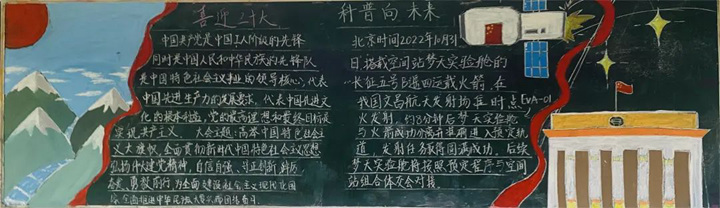 喜迎二十大
中国共产党是中国工人阶级的先锋
同时是中国人民和中华民族的先锋队
是中国特色社会主义事业的领导核心,代表
中国先进生产力的发展要求,代表中国先进文
化的前进方向,党的最高理想和最终目标是
实现共产主义。大会主题:高举中国特色社会主
义大旗帜,全面贯彻新时代中国特色社会主义思想
弘扬伟大建党精神,自信自强、守正创新,踔厉
奋发、勇毅前行,为全面建设社会主义现代化国
家、全面推进中华民族伟大复兴而团结奋斗。
科普向未来
北京时间2022年10月31
日,搭载空间站梦天实验舱的
长征五号B遥四运载火箭,在
我国文昌航天发射场准时点
火发射,约8分钟后梦天实验舱
与火箭成功分离并准确进入预定轨
道,发射任务取得圆满成功,后续
梦天实验舱将按照预定程序与空间
站组合体交会对接。